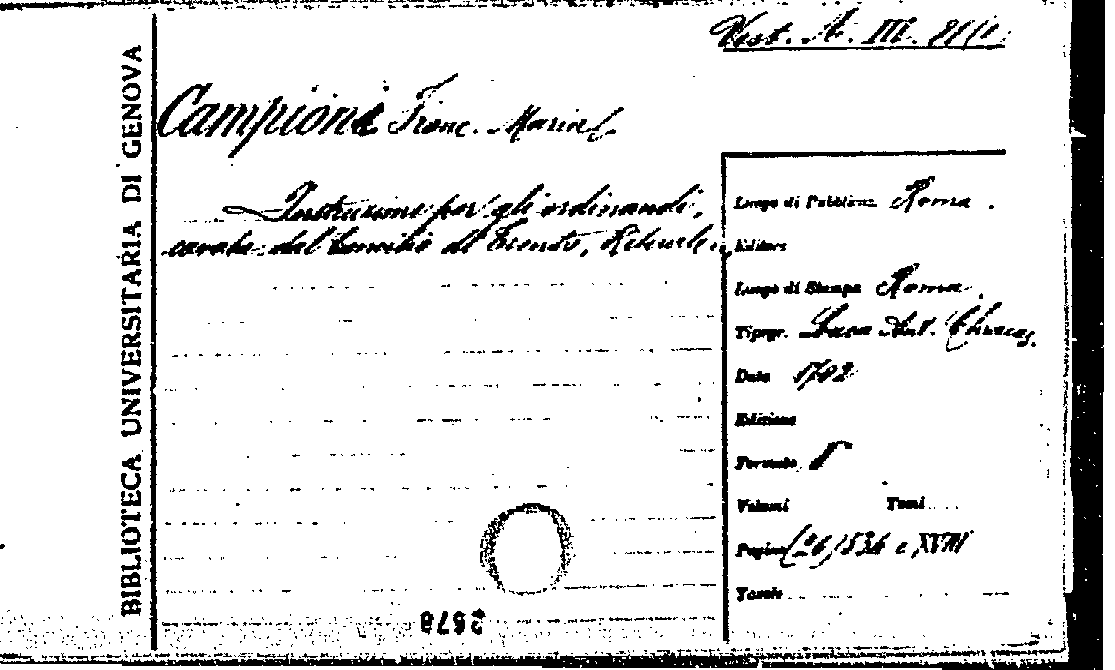 Vest. A. III.
BIBLIOTECA UNIVERSITARIA DI GENOVA
Campioni Franc. Maria
Instruzione per gli ordinandi,
cavata dal Concilio di Trento,
Luogo di Pubblicaz. Roma.
Editore
Luogo di Stampa Roma.
Tipogr. Luca Ant. Chracas,
Data 1702
Edizione
Formato 8°
Volumi Tomi
Pagine (26) 536 e XVIII
Tavole